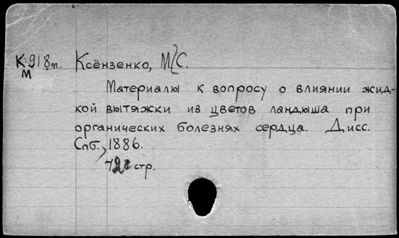 К 918т. Ксёнзенко, М.С.
М
Материалы к вопросу о влиянии жид-
кой вытяжки из цветов ландыша при
органических болезнях сердца. Дисс.
Спб., 1886.
стр.